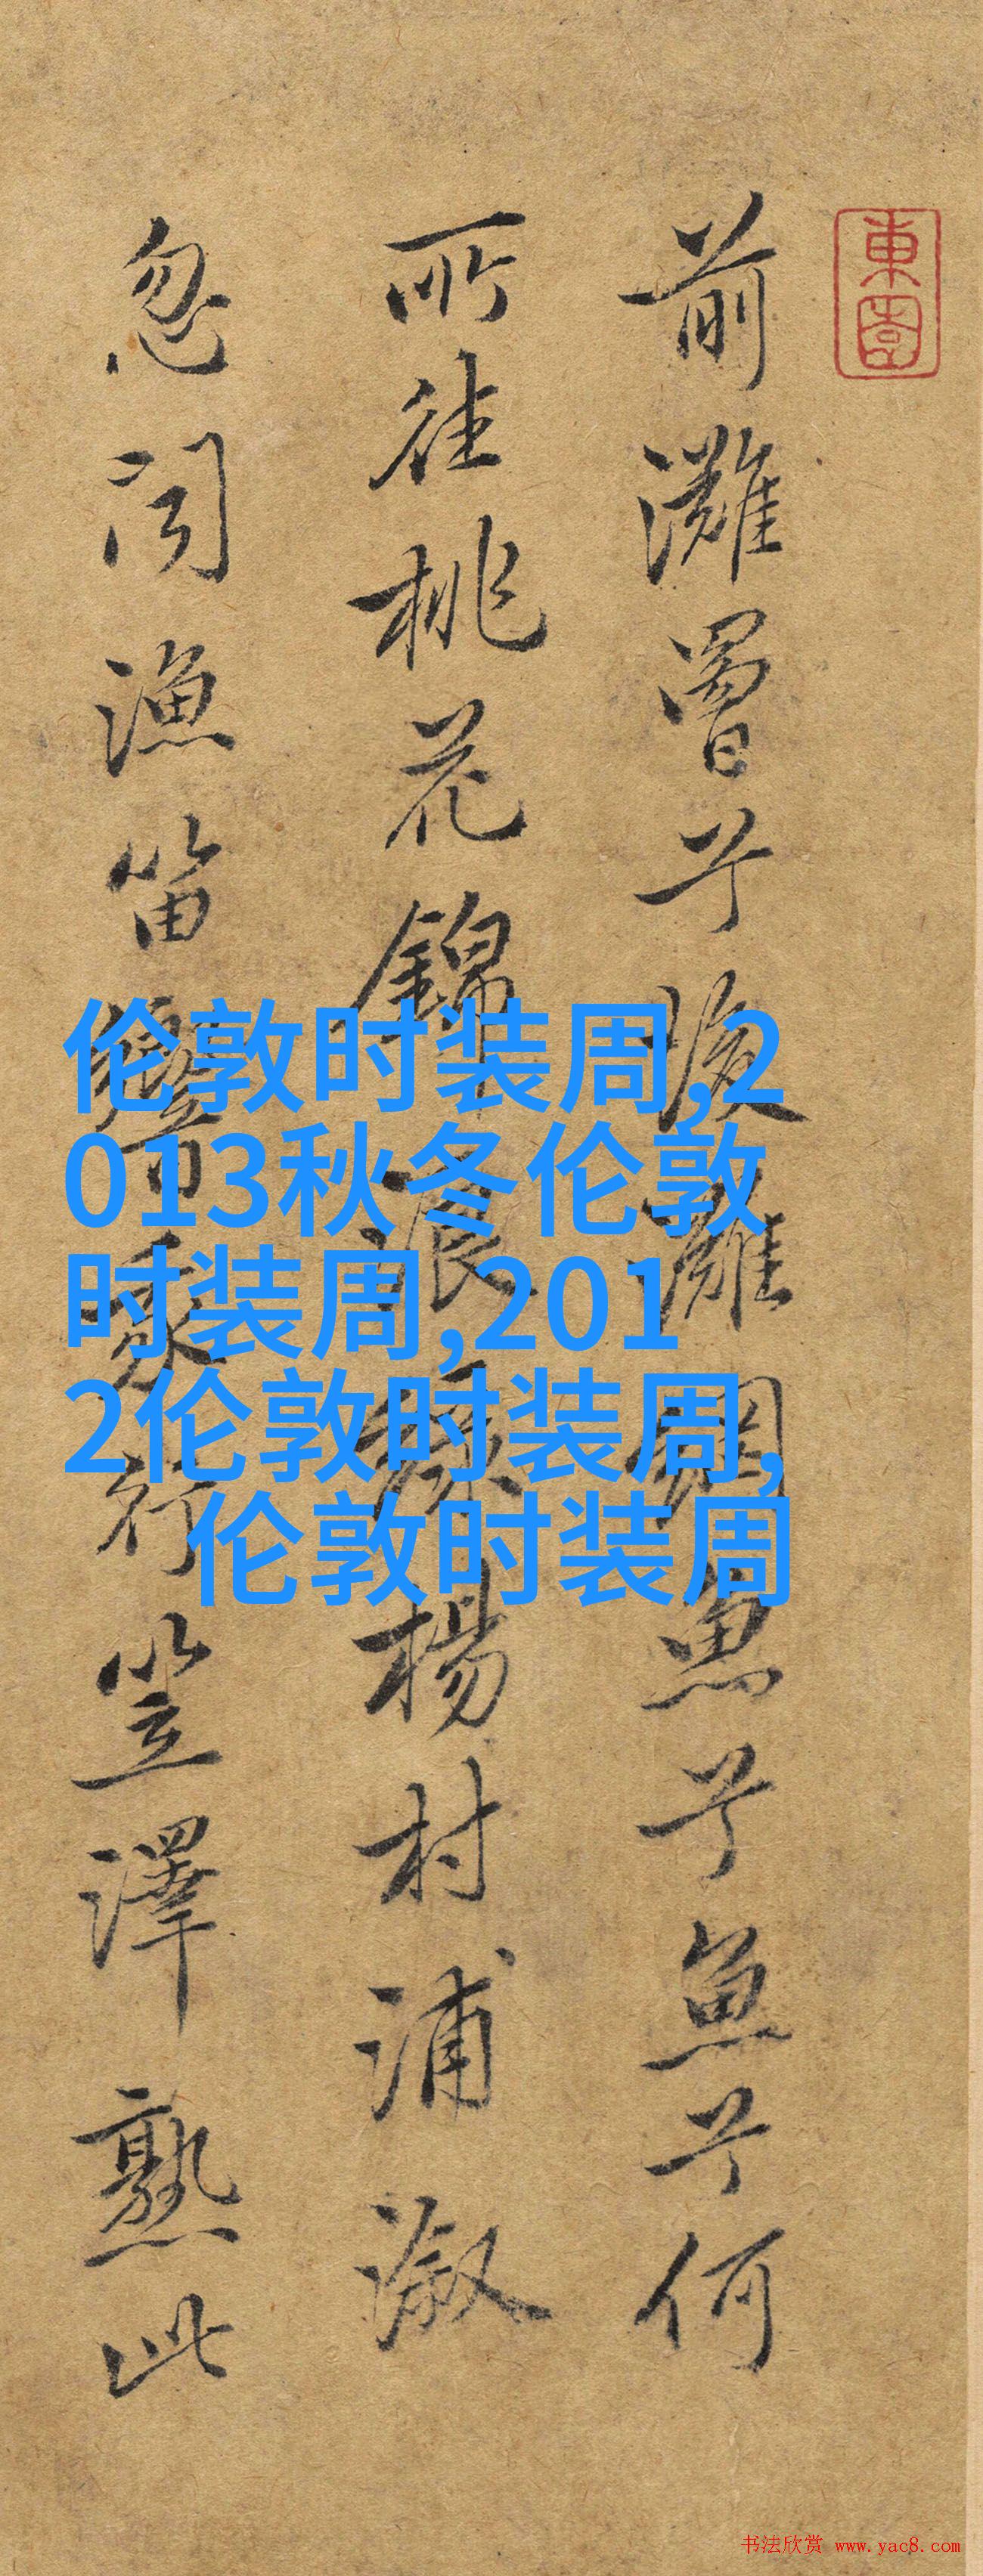 東園
前灘罾兮後灘網魚兮魚兮何
所往桃花錦浪綠楊村浦漵
忽聞漁笛響行笠澤熟此
伦敦时装周,2
013秋冬伦敦
时装周,201
2伦敦时装周,
伦敦时装周
书法欣赏 www.yac8.com